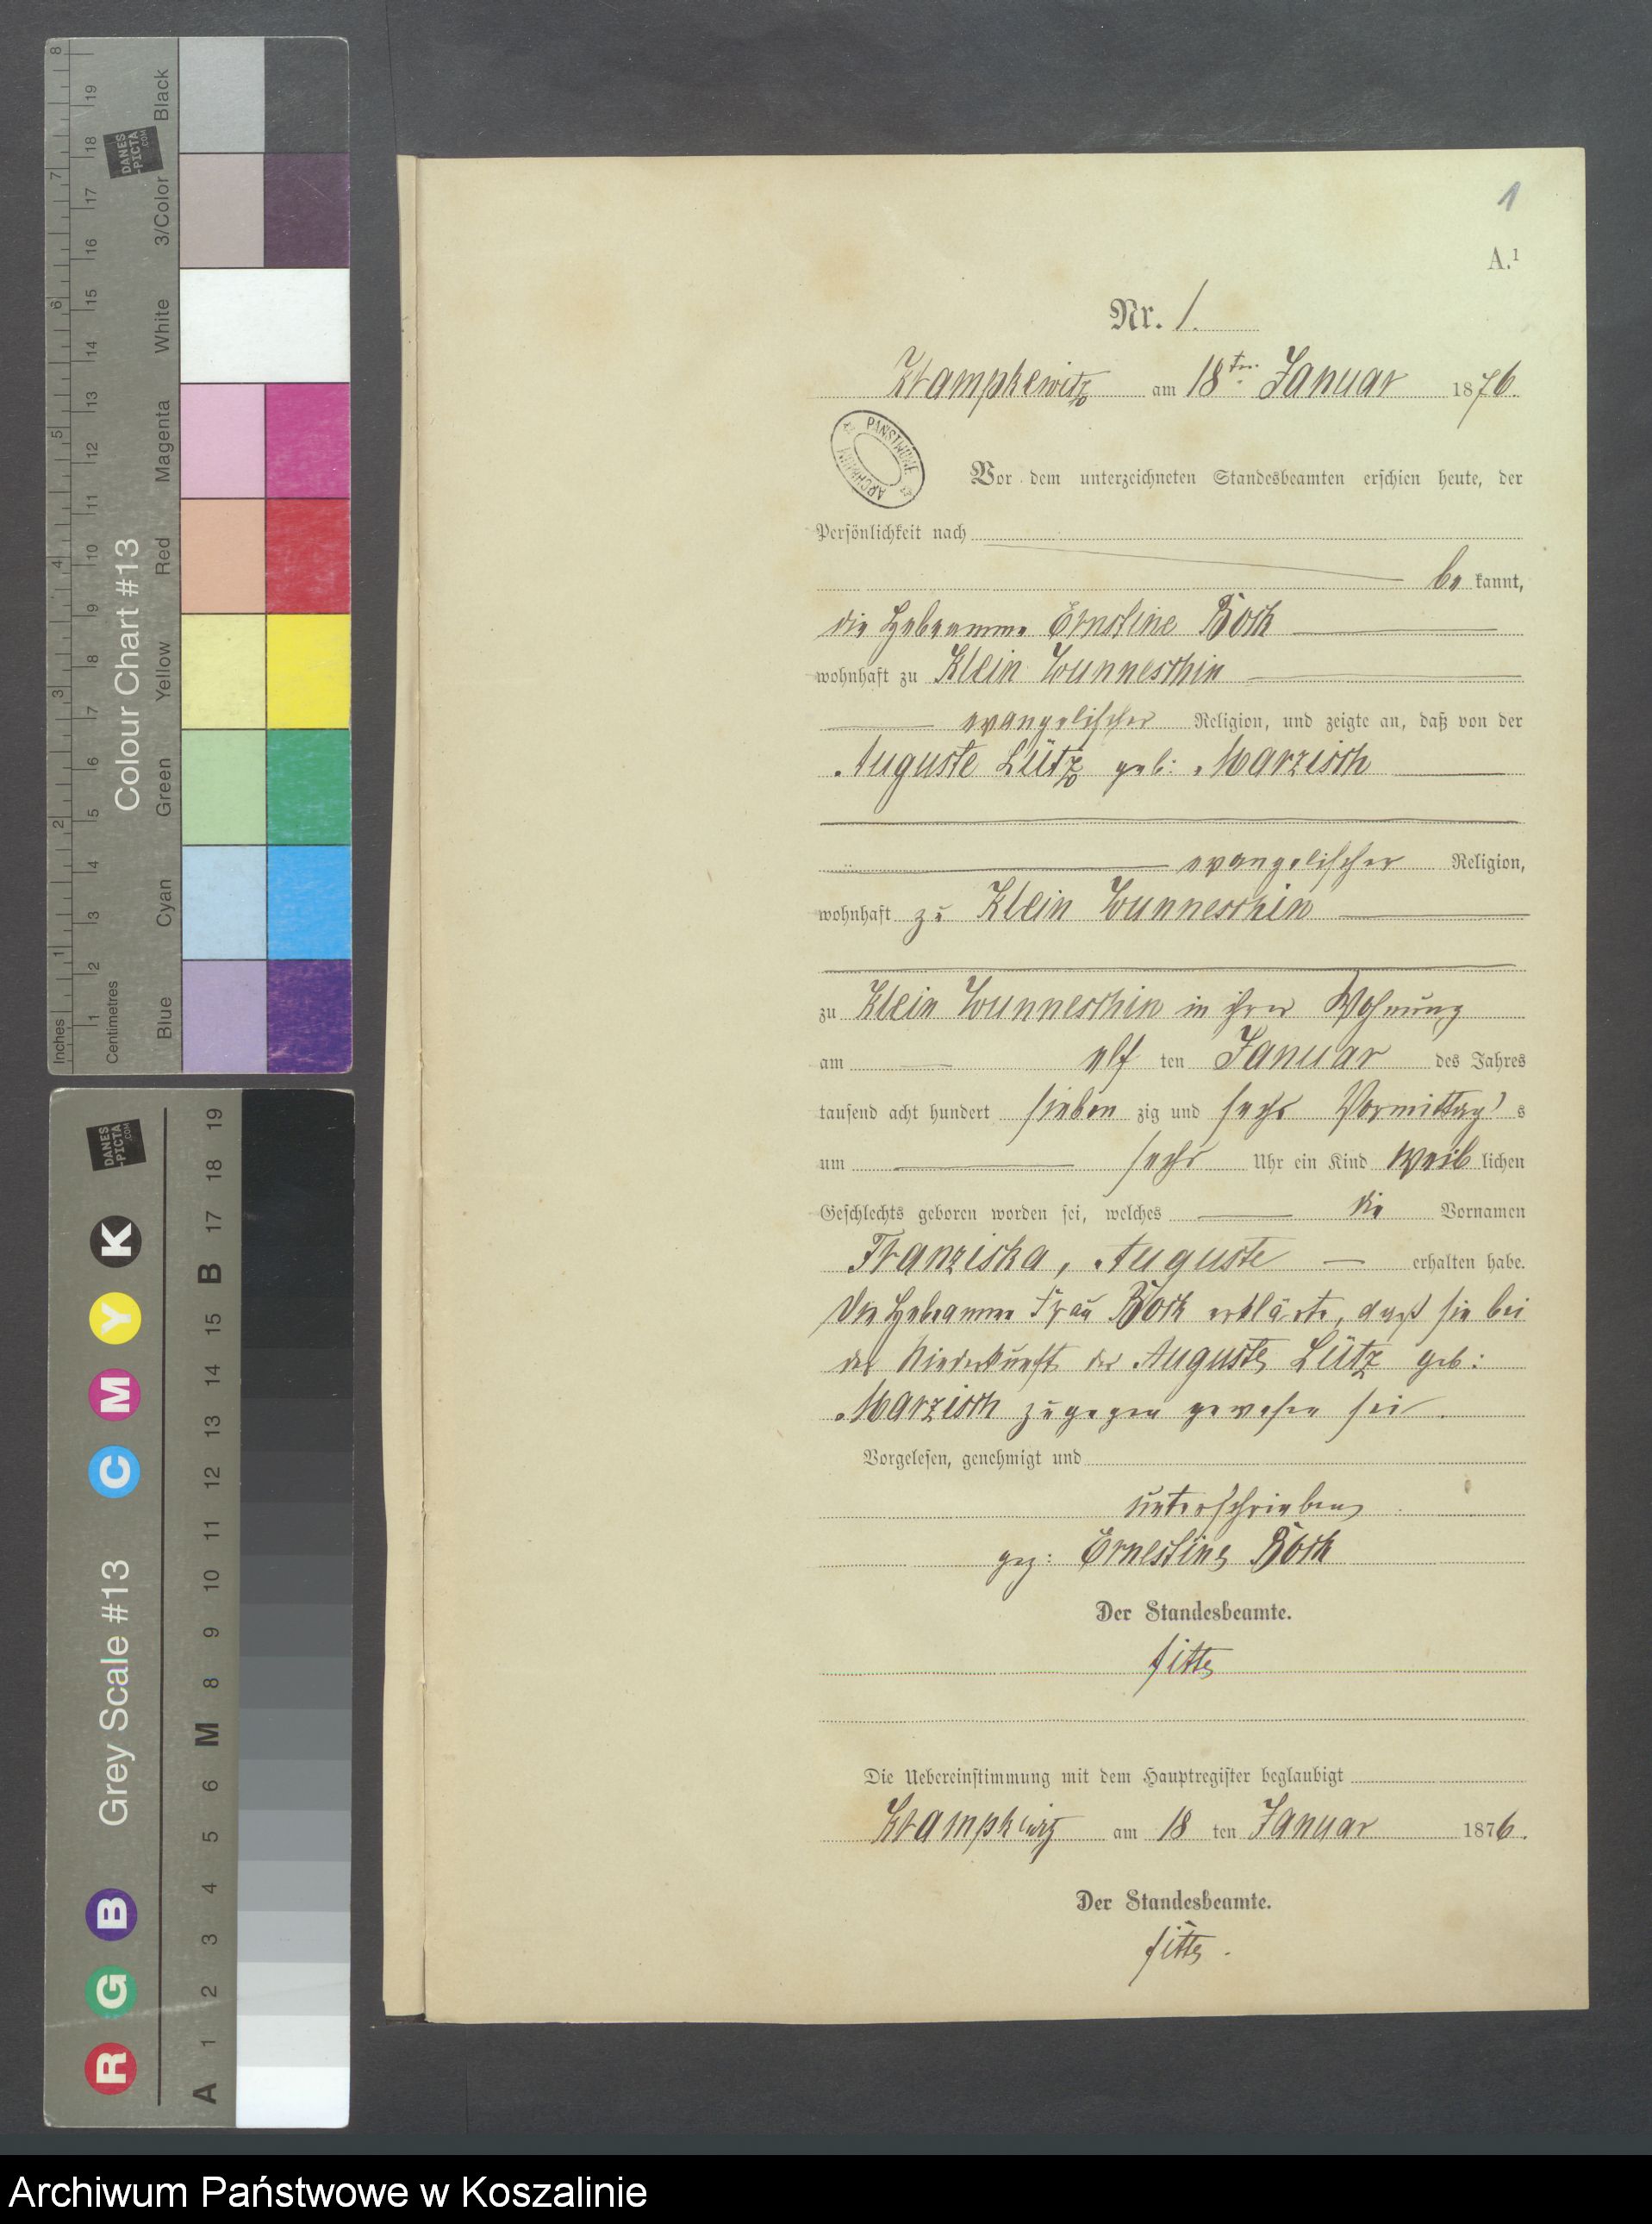 1
A.¹
Nr. 1.
Krampkewitz am 18ten Januar 1876.
ARCHIWUM PAŃSTWOWE
Vor dem unterzeichneten Standesbeamten erschien heute, der
Persönlichkeit nach
be kannt,
die Hebeamme Ernstine Bock
wohnhaft zu Klein Wunneschin
evangelischer Religion, und zeigte an, daß von der
Auguste Lütz geb: Marzisch
evangelischer Religion,
wohnhaft zu Klein Wunneschin
zu Klein Wunneschin in ihrer Wohnung
am elf ten Januar des Jahres
tausend acht hundert sieben zig und sechs Vormittag s
um sechs Uhr ein Kind weib lichen
Geschlechts geboren worden sei, welches die Vornamen
Franziska, Auguste erhalten habe.
Die Hebeamme Frau Bock erklärte, daß sie bei
der Niederkunft der Auguste Lütz geb:
Marzisch zugegen gewesen sei.
Vorgelesen, genehmigt und
unterschrieben
gez: Ernestine Bock
Der Standesbeamte.
Die Uebereinstimmung mit dem Hauptregister beglaubigt
Krampkewitz am 18 ten Januar 1876.
Der Standesbeamte.
Inches 1 2 3 4 5 6 7 8
Centimetres 1 2 3 4 5 6 7 8 9 10 11 12 13 14 15 16 17 18 19
Colour Chart #13
Blue Cyan Green Yellow Red Magenta White 3/Color Black
DANES
-PICTA
.COM
Grey Scale #13
R G B C M Y K
A 1 2 3 4 5 6 M 8 9 10 11 12 13 14 15 B 17 18 19
DANES
-PICTA
.COM
Archiwum Państwowe w Koszalinie